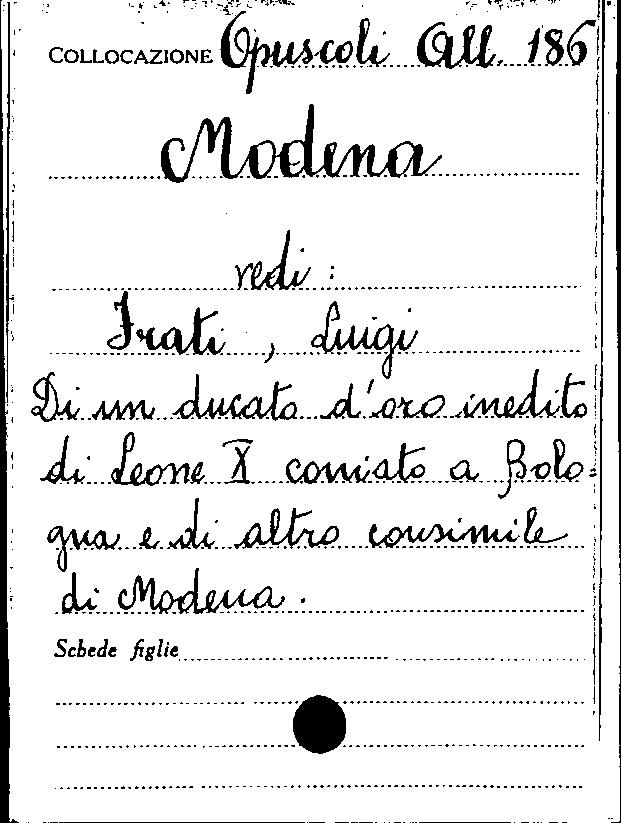 COLLOCAZIONE Opuscoli All. 186
Modena
vedi :
Frati, Luigi
Di un ducato d'oro inedito
di Leone X coniato a Bolo=
gna e di altro consimile
di Modena.
Schede figlie